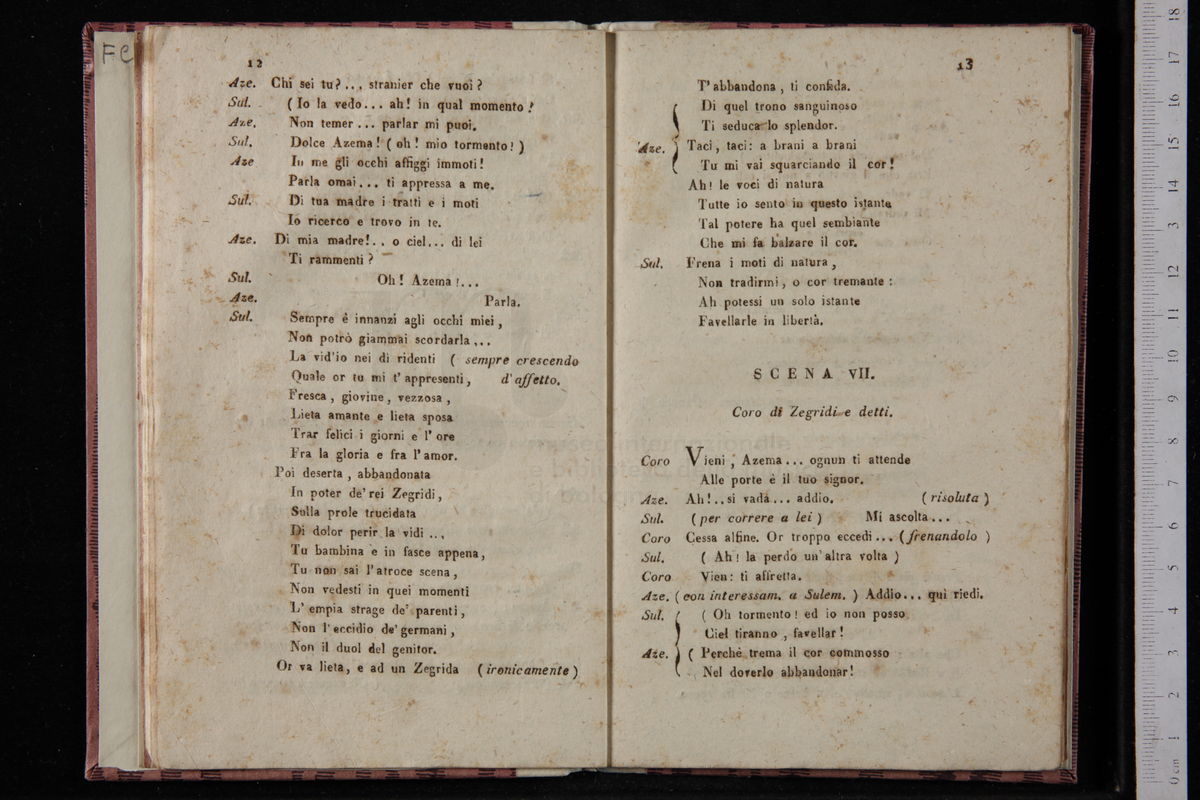 FC
12
Aze. Chi sei tu?... stranier che vuoi?
Sul. (Io la vedo... ah! in qual momento!
Aze. Non temer... parlar mi puoi.
Sul. Dolce Azema! (oh! mio tormento!)
Aze In me gli occhi affiggi immoti!
Parla omai... ti appressa a me.
Sul. Di tua madre i tratti e i moti
Io ricerco e trovo in te.
Aze. Di mia madre!.. o ciel... di lei
Ti rammenti?
Sul. Oh! Azema!...
Aze. Parla.
Sul. Sempre è innanzi agli occhi miei,
Non potrò giammai scordarla...
La vid'io nei dì ridenti (sempre crescendo
Quale or tu mi t'appresenti, d'affetto.
Fresca, giovine, vezzosa,
Lieta amante e lieta sposa
Trar felici i giorni e l'ore
Fra la gloria e fra l'amor.
Poi deserta, abbandonata
In poter de' rei Zegridi,
Sulla prole trucidata
Di dolor perir la vidi...
Tu bambina e in fasce appena,
Tu non sai l'atroce scena,
Non vedesti in quei momenti
L'empia strage de' parenti,
Non l'eccidio de' germani,
Non il duol del genitor.
Or va lieta, e ad un Zegrida (ironicamente)
13
T'abbandona, ti confida.
Di quel trono sanguinoso
Ti seduca lo splendor.
Aze. Taci, taci: a brani a brani
Tu mi vai squarciando il cor!
Ah! le voci di natura
Tutte io sento in questo istante
Tal potere ha quel sembiante
Che mi fa balzare il cor.
Sul. Frena i moti di natura,
Non tradirmi, o cor tremante:
Ah potessi un solo istante
Favellarle in libertà.
SCENA VII.
Coro di Zegridi e detti.
Coro Vieni, Azema... ognun ti attende
Alle porte è il tuo signor.
Aze. Ah!..si vada... addio. (risoluta)
Sul. (per correre a lei) Mi ascolta...
Coro Cessa alfine. Or troppo eccedi... (frenandolo)
Sul. (Ah! la perdo un'altra volta)
Coro Vien: ti affretta.
Aze. (con interessam. a Sulem.) Addio... quì riedi.
Sul. (Oh tormento! ed io non posso
Ciel tiranno, favellar!
Aze. (Perchè trema il cor commosso
Nel doverlo abbandonar!
museo internazionale
biblioteca
di bologna
0 cm 1 2 3 4 5 6 7 8 9 10 11 12 13 14 15 16 17 18